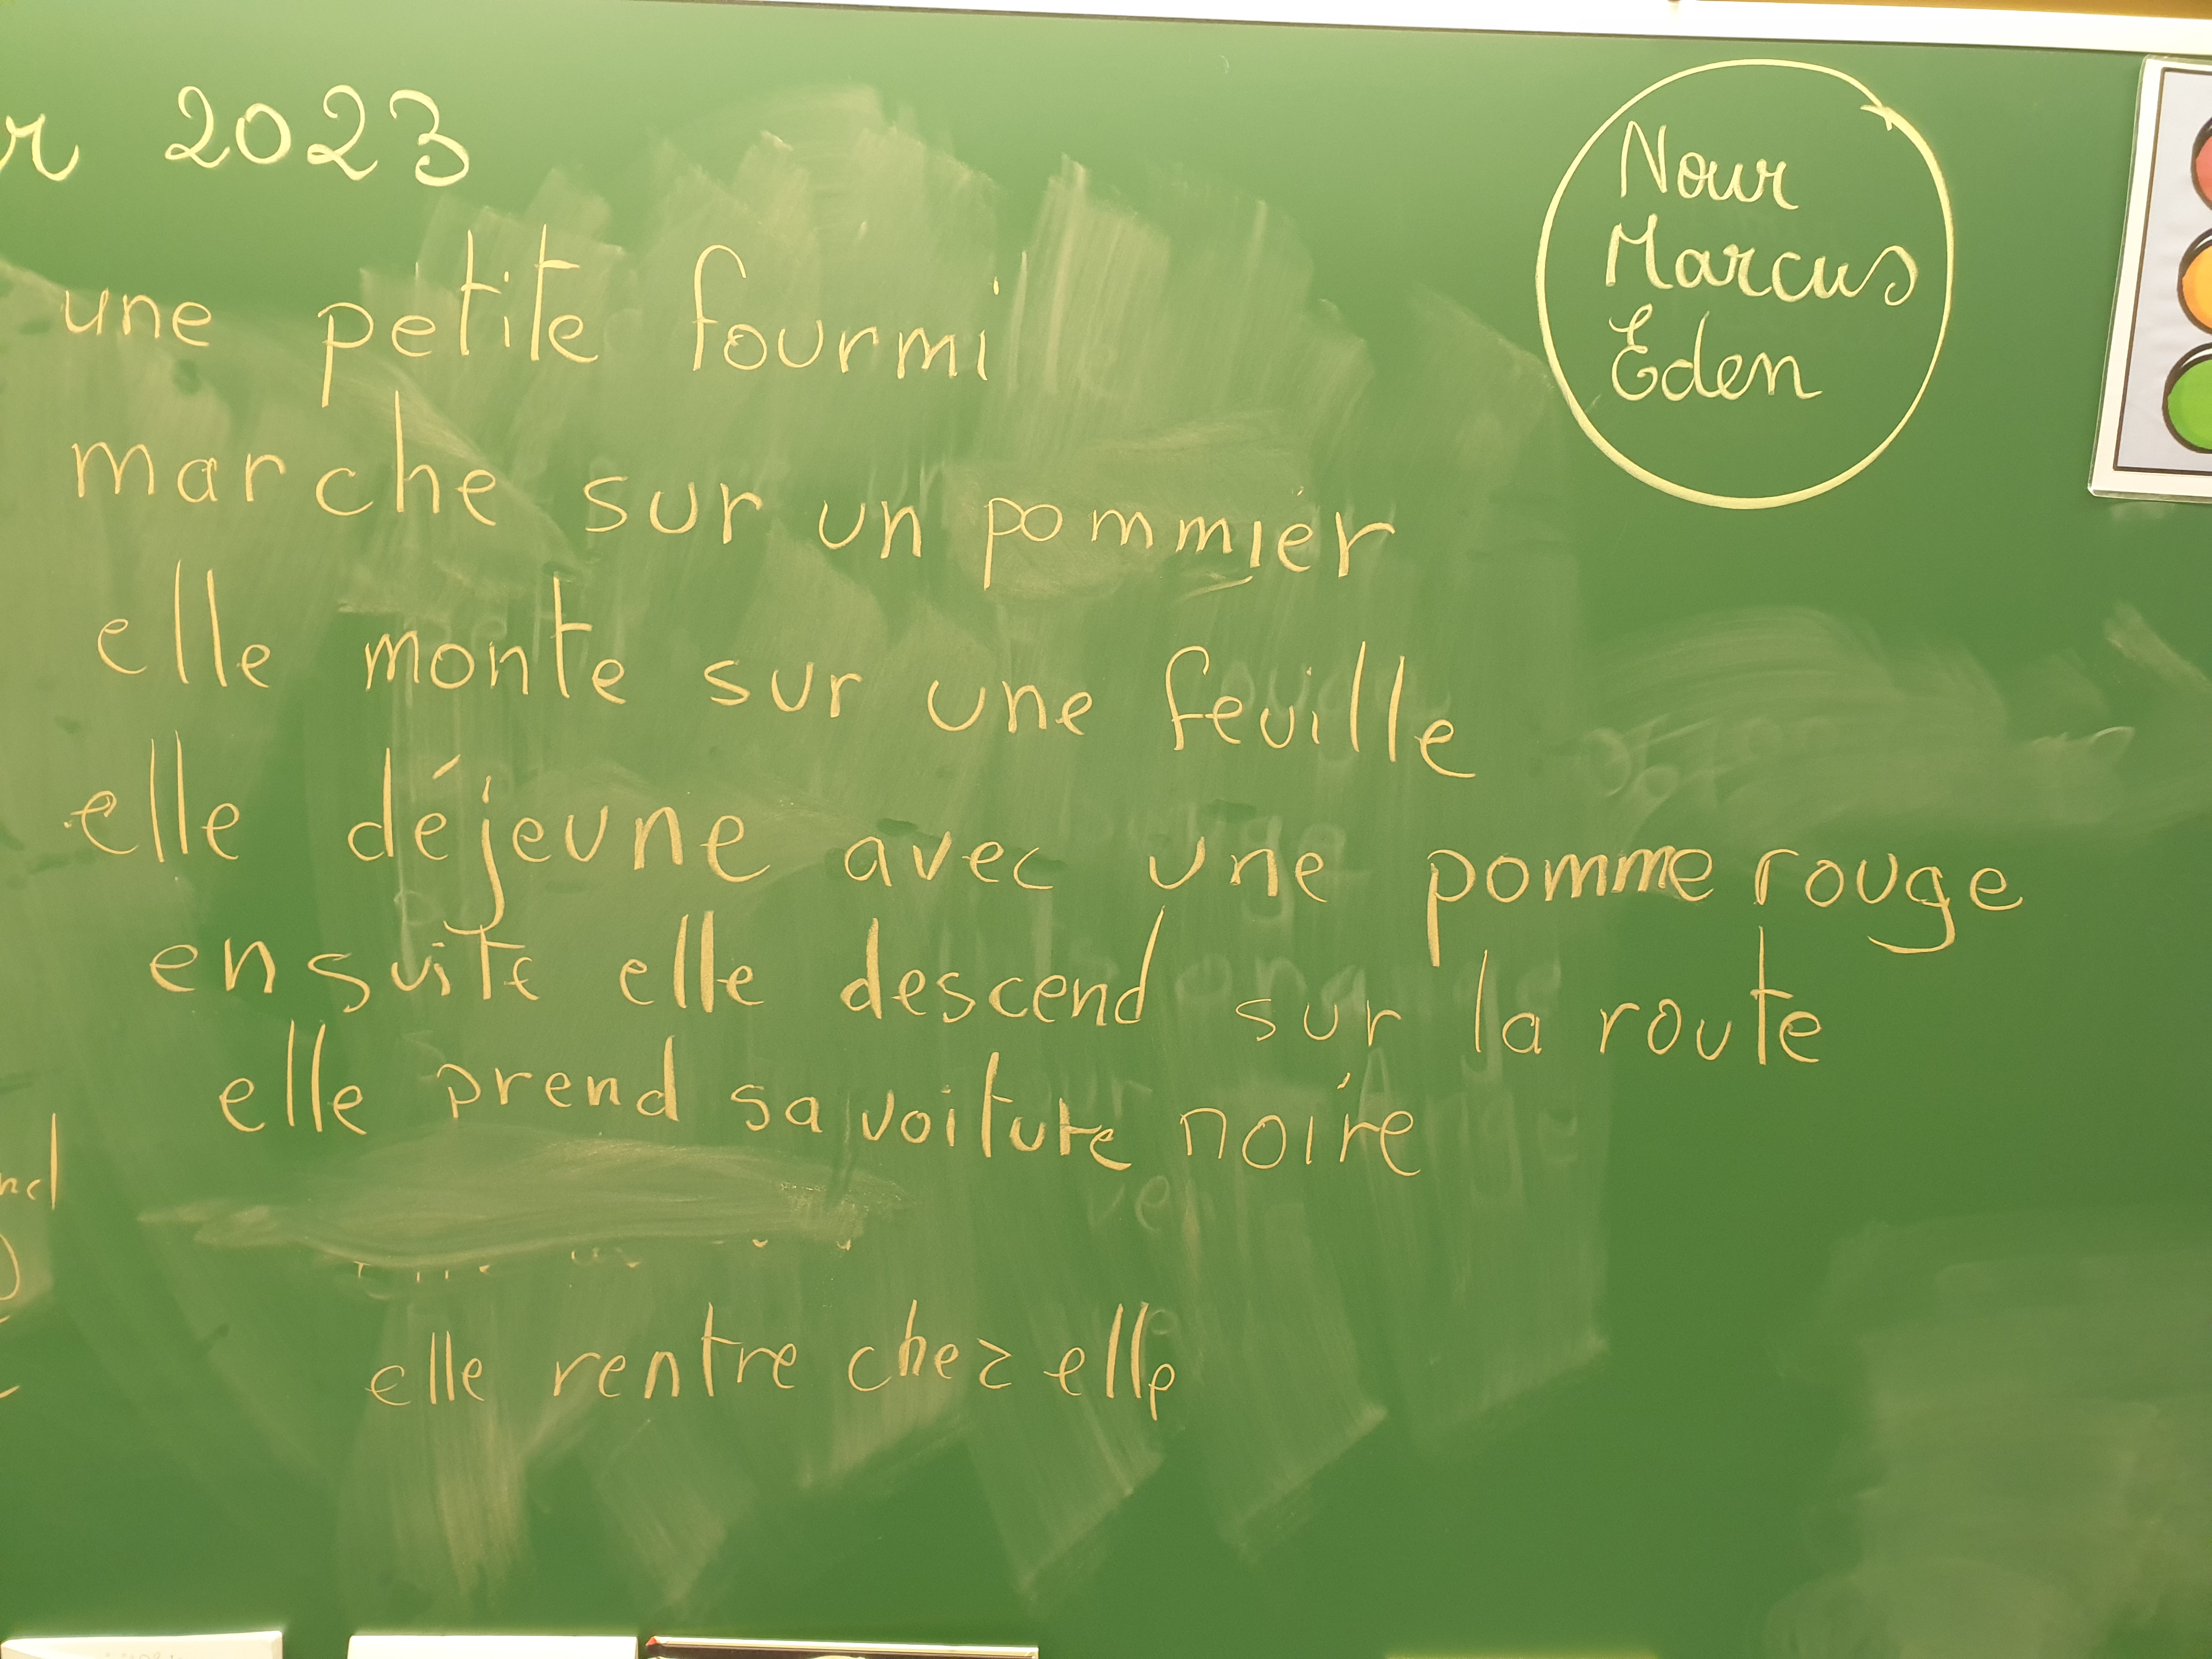 2023
Nour
Marcus
Eden
une petite fourmi
marche sur un pommier
elle monte sur une feuille
elle déjeune avec une pomme rouge
ensuite elle descend sur la route
elle prend sa voiture noire
elle rentre chez elle